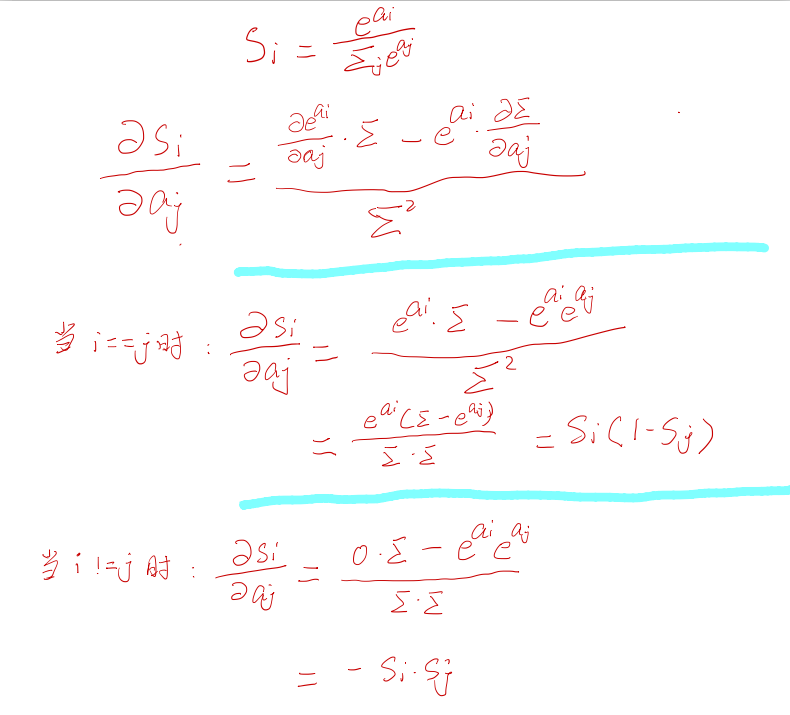 Si = e^{ai} / Σ_j e^{aj}
∂Si/∂aj = (∂e^{ai}/∂aj · Σ − e^{ai} · ∂Σ/∂aj) / Σ²
当 i==j时: ∂Si/∂aj = (e^{ai} · Σ − e^{ai}e^{aj}) / Σ²
= e^{ai}(Σ−e^{aj}) / Σ·Σ = Si(1−Sj)
当 i!=j时: ∂Si/∂aj = (0·Σ − e^{ai}e^{aj}) / Σ·Σ
= −Si·Sj